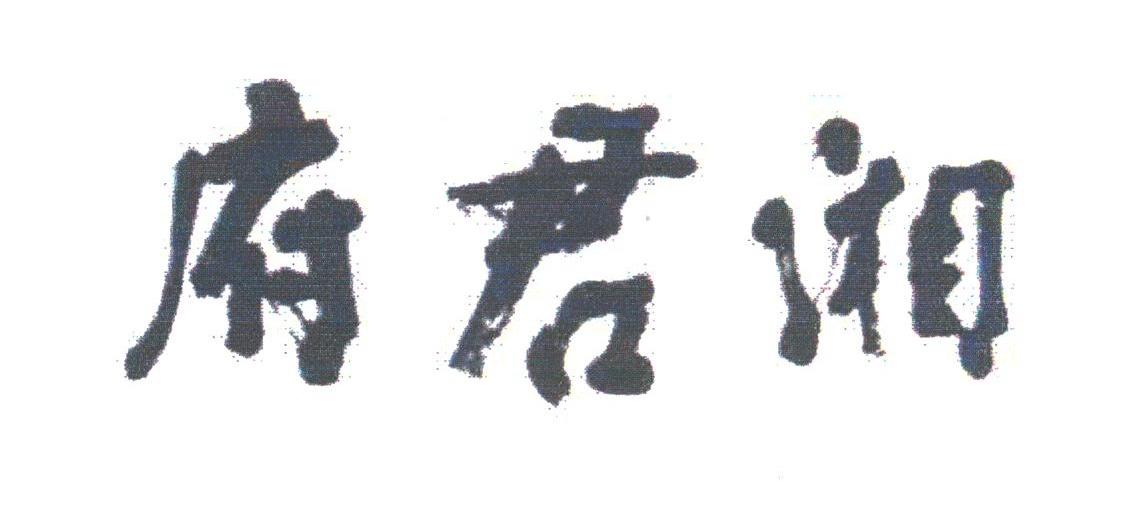 府君湘